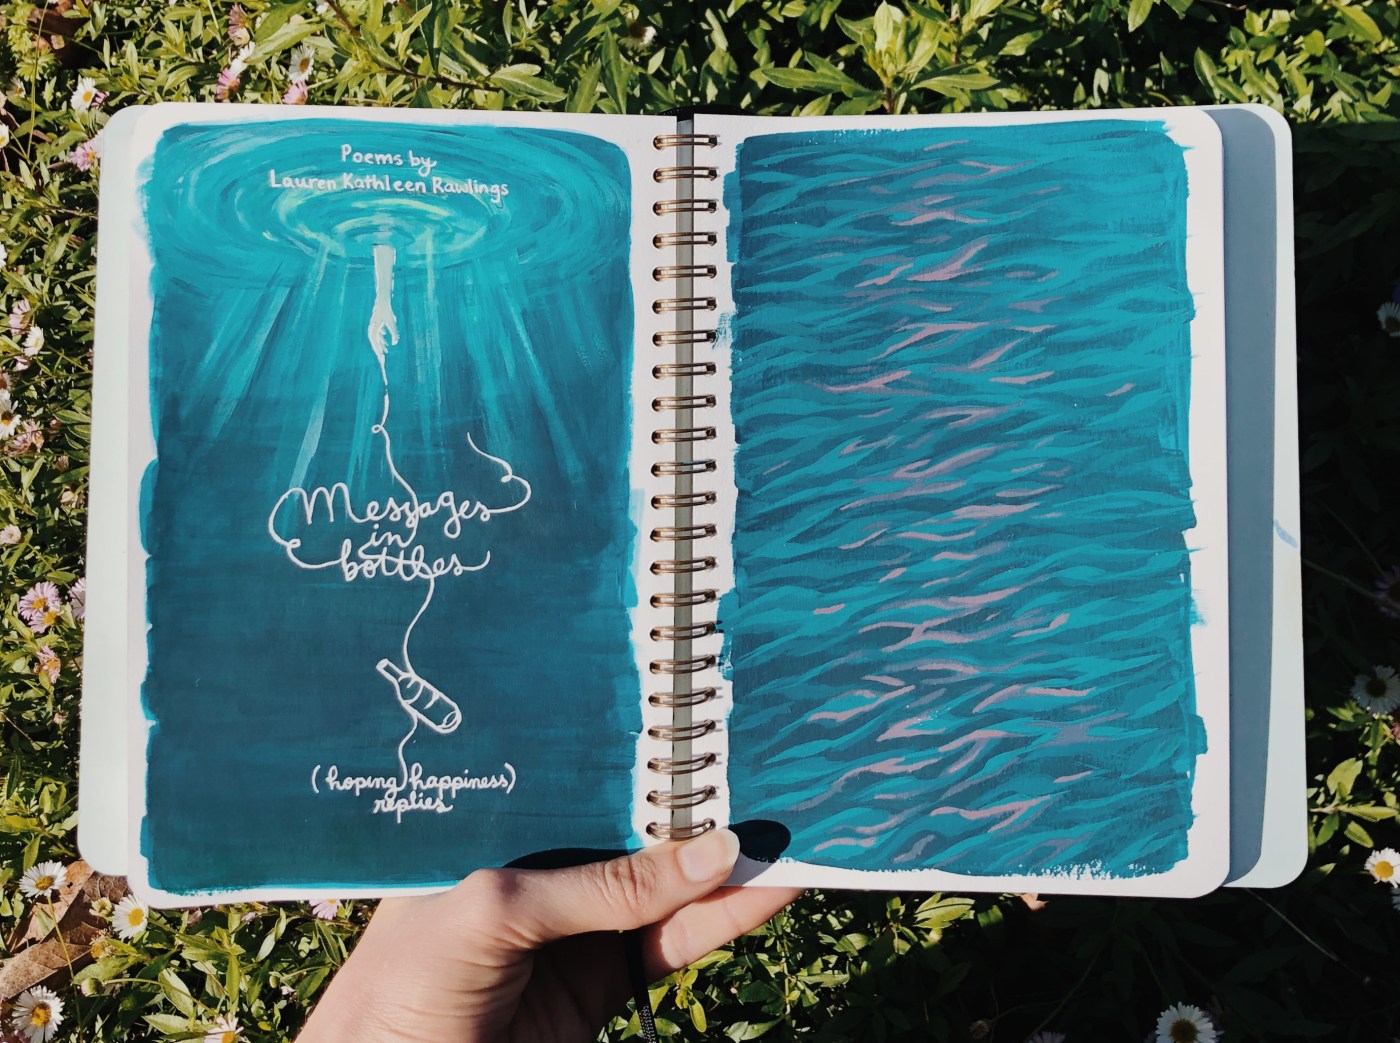 Poems by
Lauren Kathleen Rawlings
Messages
in
bottles
(hoping happiness)
replies